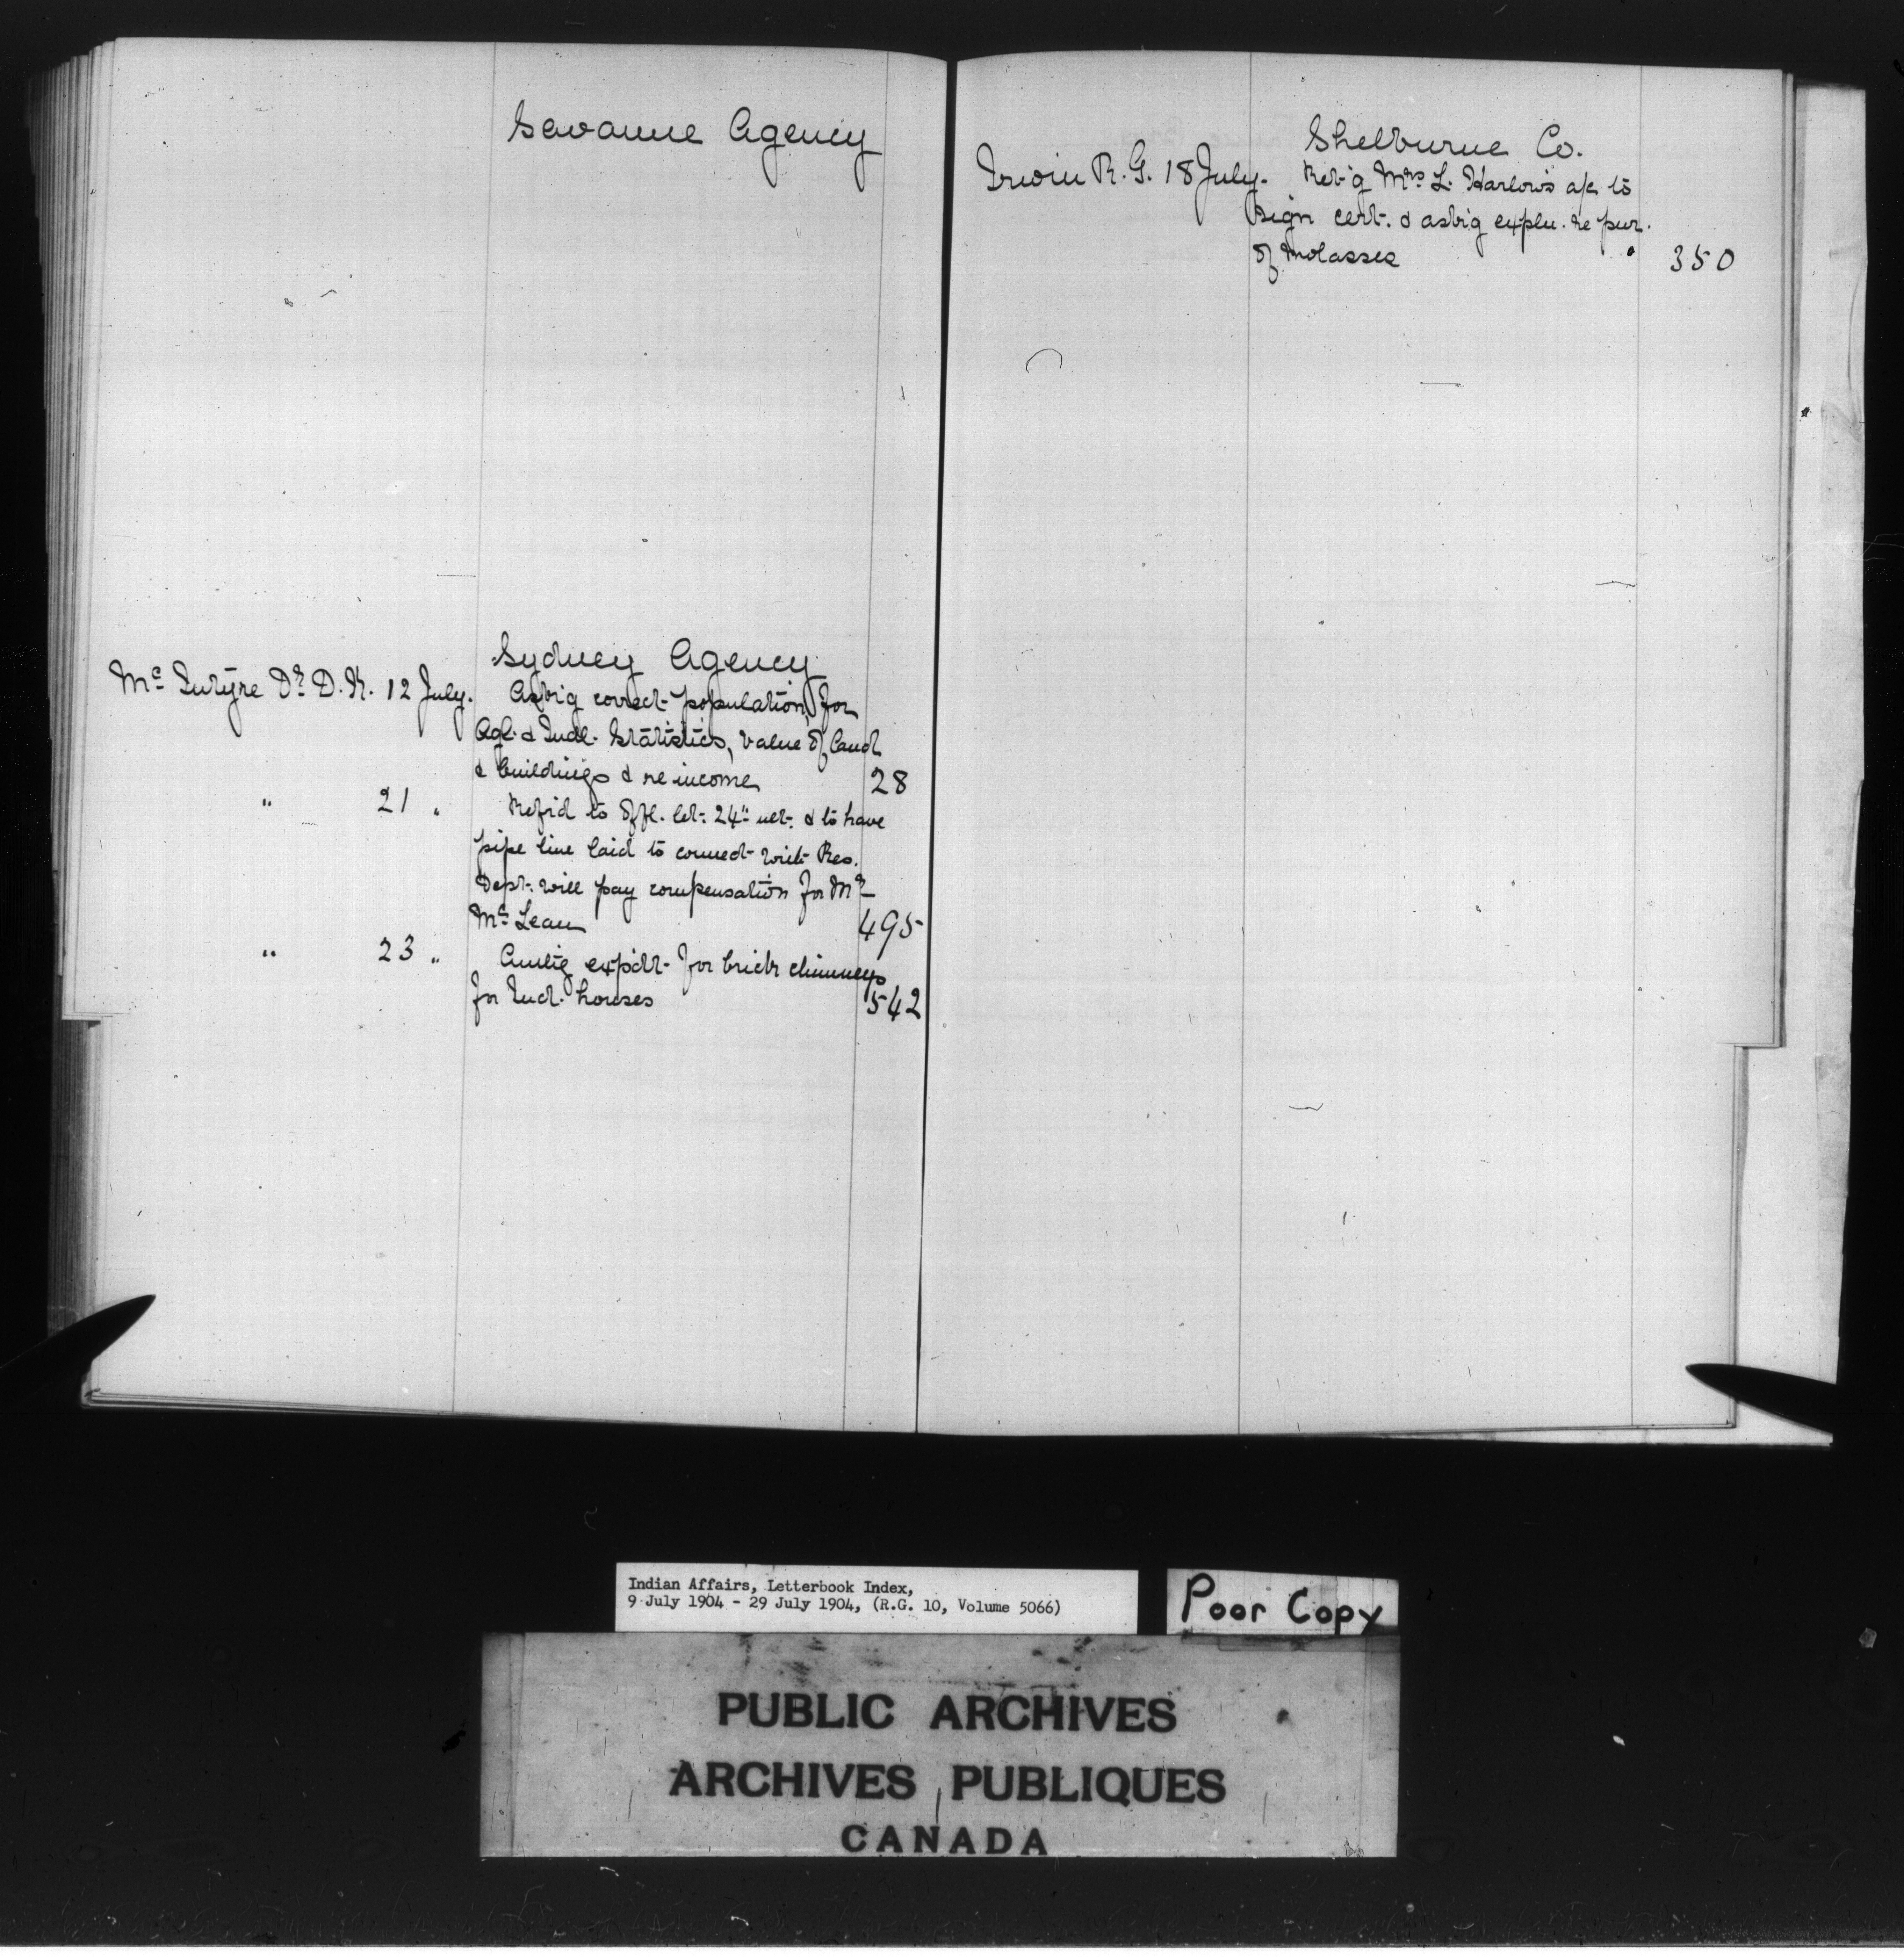 Savanne Agency
Sydney Agency
Mc Intyre Dr D. K. 12 July. Ask'g correct population, for
Agl. & Indl. Statistics, value of land
& buildings & re income 28
" 21 " Ref'd to offl. let. 24th ult. & to have
pipe line laid to connect with Res.
Dept. will pay compensation for Mr
Mc Lean 495
" 23 " expdr. for brick chimneys
for Ind. houses 542
Shelburne Co.
Irwin R. G. 18 July. Ret'g Mrs L. Harlow's a/c to
sign cert. & ask'g expln. re pur.
of Molasses 350
Indian Affairs, Letterbook Index,
9 July 1904 - 29 July 1904, (R.G. 10, Volume 5066)
Poor Copy
PUBLIC ARCHIVES
ARCHIVES PUBLIQUES
CANADA